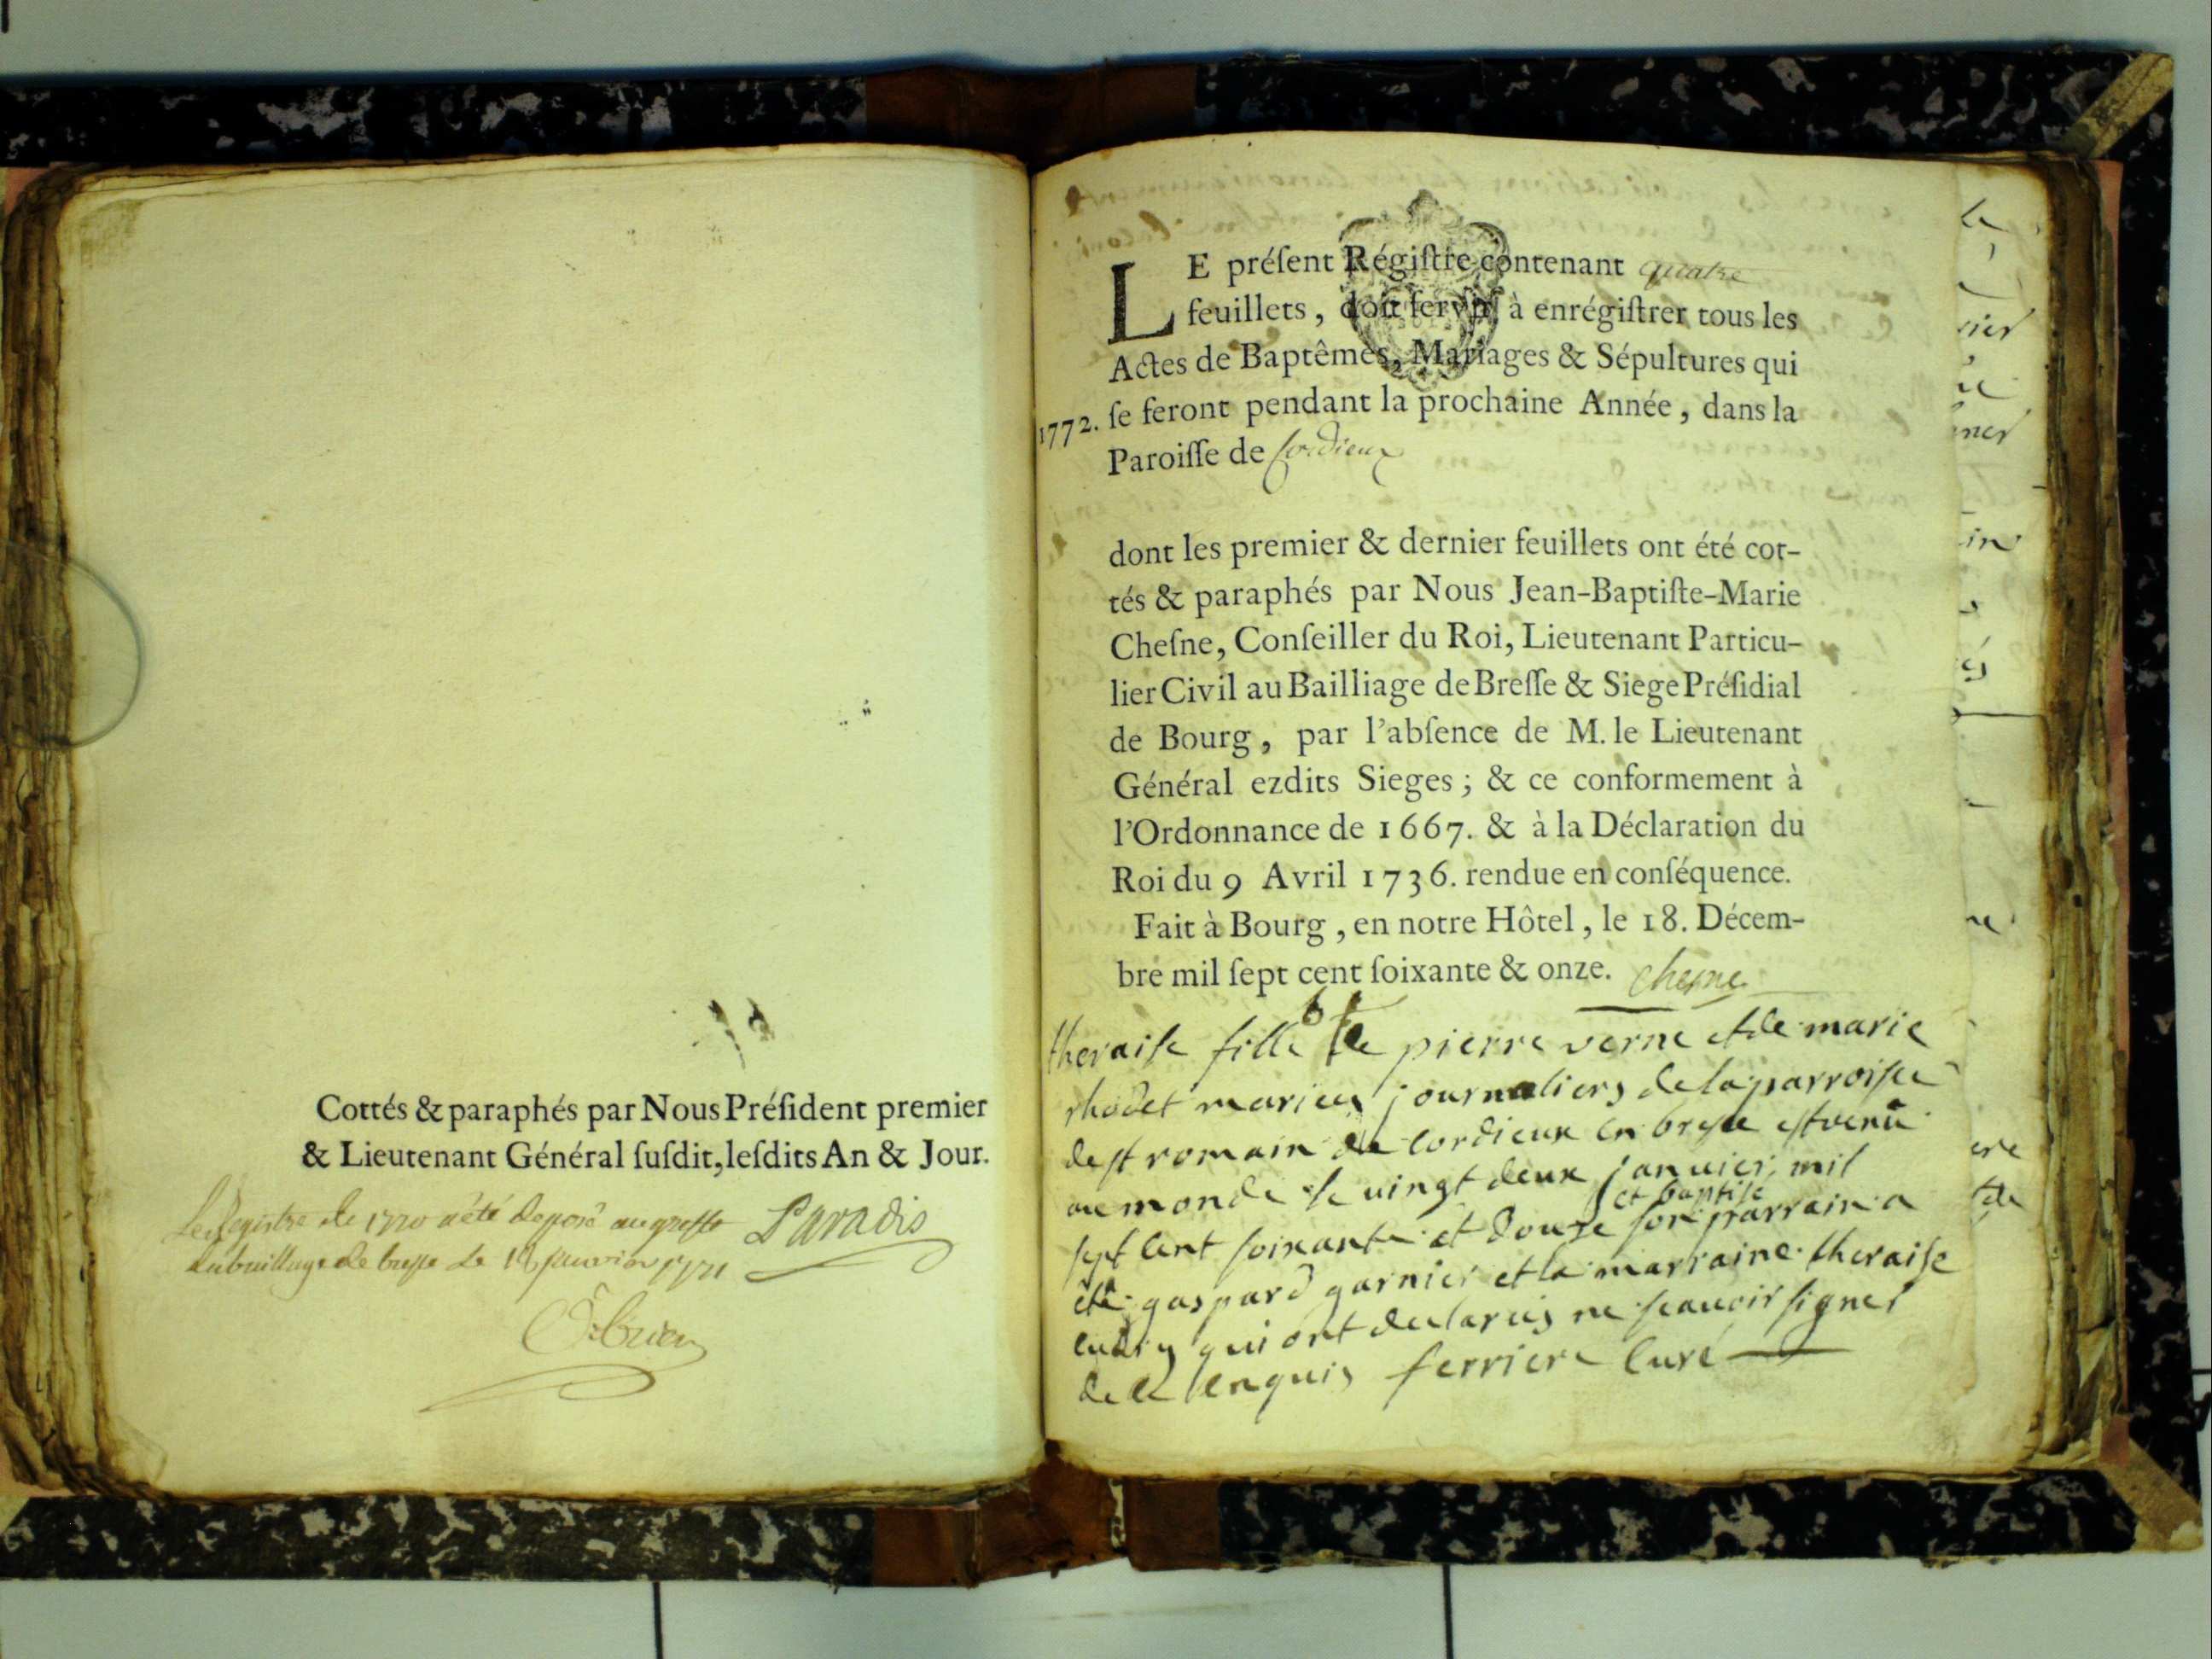 Cottés & paraphés par Nous Préſident premier
& Lieutenant Général ſuſdit, leſdits An & Jour.
Le Registre de 1770 a été deposé au greffe
du bailliage de bresse le 18 janvier 1771
Paradis
LE préſent Régiſtre contenant quatre
feuillets, doit ſervir à enrégiſtrer tous les
Actes de Baptêmes, Mariages & Sépultures qui
1772. ſe feront pendant la prochaine Année, dans la
Paroiſſe de Cordieux
dont les premier & dernier feuillets ont été cot-
tés & paraphés par Nous Jean-Baptiſte-Marie
Cheſne, Conſeiller du Roi, Lieutenant Particu-
lier Civil au Bailliage de Breſſe & Siege Préſidial
de Bourg, par l'abſence de M. le Lieutenant
Général ezdits Sieges; & ce conformement à
l'Ordonnance de 1667. & à la Déclaration du
Roi du 9 Avril 1736. rendue en conſéquence.
Fait à Bourg, en notre Hôtel, le 18. Décem-
bre mil ſept cent ſoixante & onze. chesne
b
theraise fille de pierre verne et de marie
rhodet mariees journaliers de la parroisse
de st romain de cordieux en bresse est venü
au monde le vingt deux janvier mil
et baptise
sept cent soixante et douze son parrain a
été gaspard garnier et la marraine theraise
qui ont declarés ne scauoir signer
de ce enquis ferriere Curé